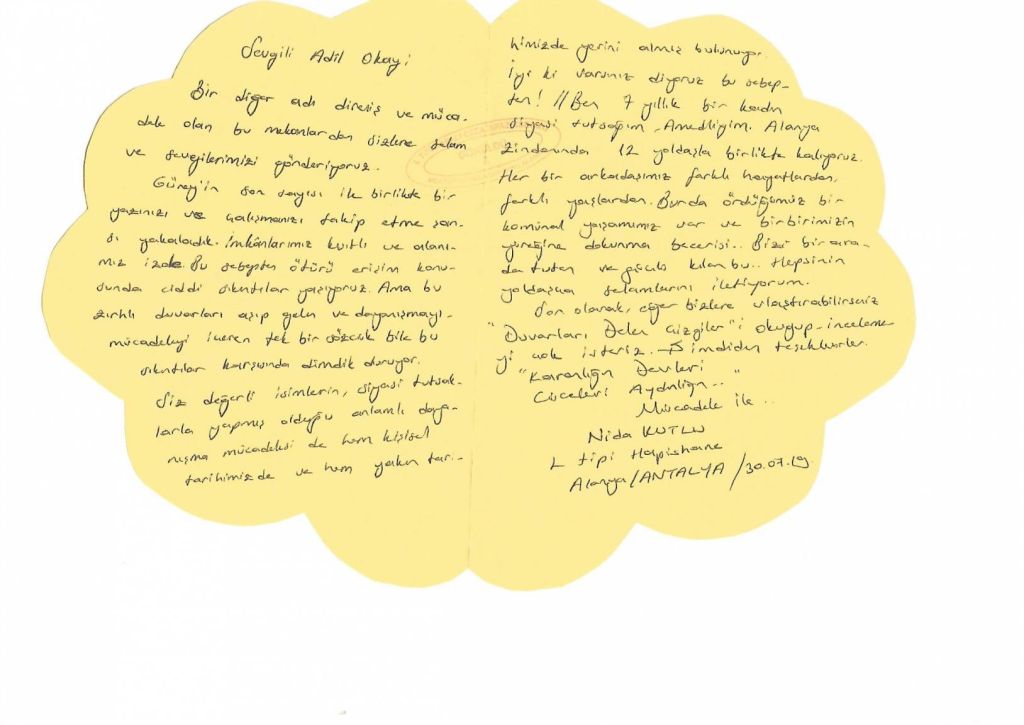 Sevgili Adil Okay'i
Bir diğer adı direniş ve müca-
dele olan bu mekanlardan sizlere selam
ve sevgilerimizi gönderiyoruz.
Güney'in son sayısı ile birlikte bir
yazınızı ve çalışmanızı takip etme şan-
sı yakaladık. İmkânlarımız kısıtlı ve alanı-
mız izole. Bu sebepten ötürü erişim konu-
sunda ciddi sıkıntılar yaşıyoruz. Ama bu
zırhlı duvarları aşıp gelen ve dayanışmayı-
mücadeleyi içeren tek bir sözcük bile bu
sıkıntılar karşısında dimdik duruyor.
Siz değerli isimlerin, siyasi tutsak-
larla yapmış olduğu anlamlı daya-
nışma mücadelesi de hem kişisel
tarihimizde ve hem yakın tari-
himizde yerini almış bulunuyor.
İyi ki varsınız diyoruz bu sebep-
ten! // Ben 7 yıllık bir kadın
siyasi tutsağım. Amedliyim. Alanya
zindanında 12 yoldaşla birlikte kalıyoruz.
Her bir arkadaşımız farklı hayatlardan,
farklı yaşlardan. Burda ördüğümüz bir
komünal yaşamımız var ve birbirimizin
yüreğine dokunma becerisi.. Bizi bir ara-
da tutan ve güçlü kılan bu.. Hepsinin
yoldaşça selamlarını iletiyorum.
Son olarak, eğer bizlere ulaştırabilirseniz
"Duvarları Delen Çizgiler"i okuyup-inceleme-
yi çok isteriz. Şimdiden teşekkürler.
"Karanlığın Devleri
Cüceleri Aydınlığın.."
Mücadele ile..
Nida KUTLU
L tipi Hapishane
Alanya/ANTALYA /30.07.19